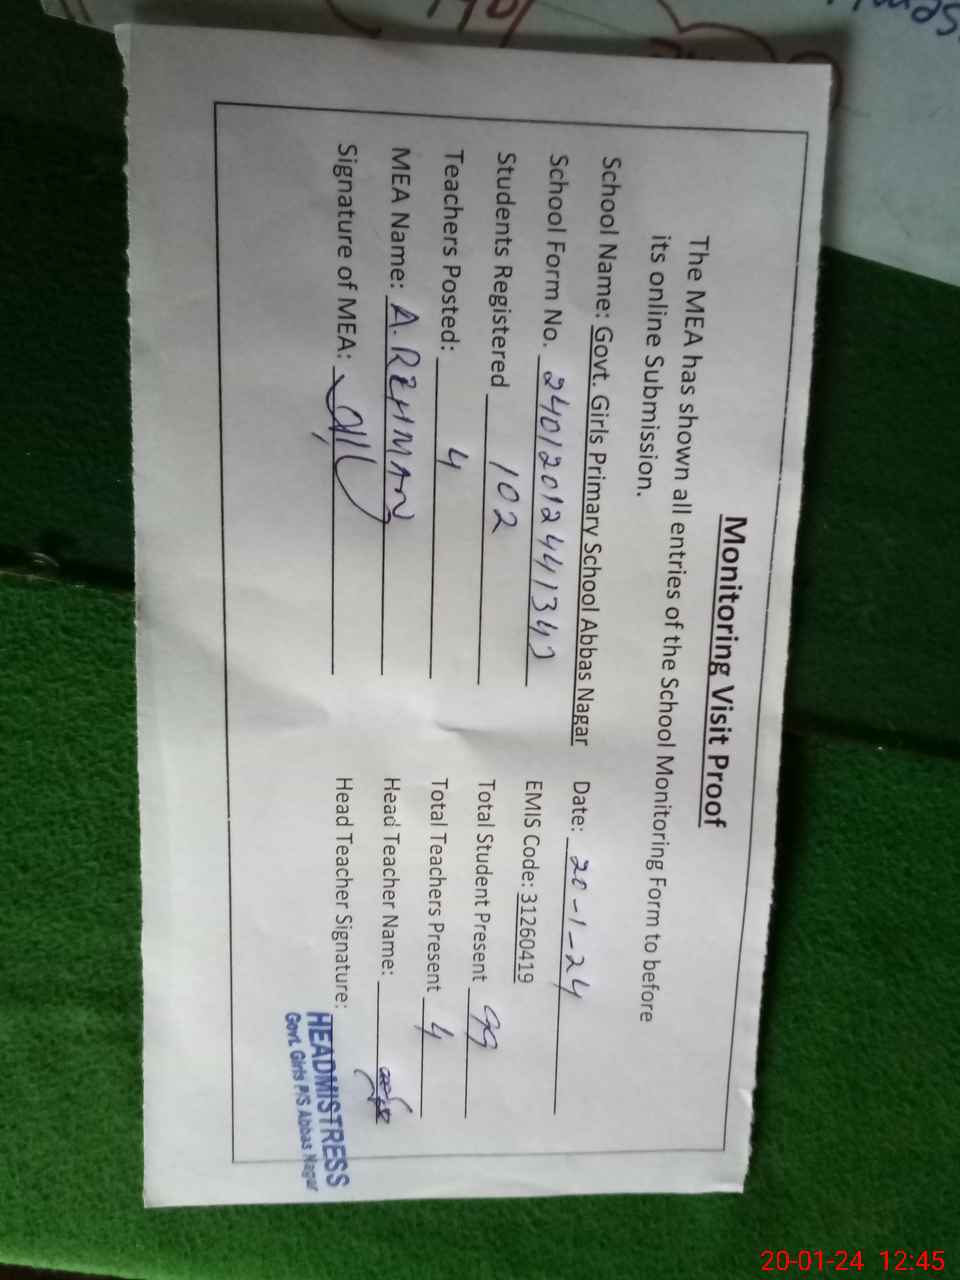 Monitoring Visit Proof
The MEA has shown all entries of the School Monitoring Form to before
its online Submission.
School Name: Govt. Girls Primary School Abbas Nagar Date: 20-1-24
School Form No. EMIS Code: 31260419
Students Registered 102 Total Student Present 99
Teachers Posted: 4 Total Teachers Present 4
MEA Name: A. REHMAN Head Teacher Name:
Signature of MEA: Head Teacher Signature:
HEADMISTRESS
Govt. Girls P/S Abbas Nagar
20-01-24 12:45